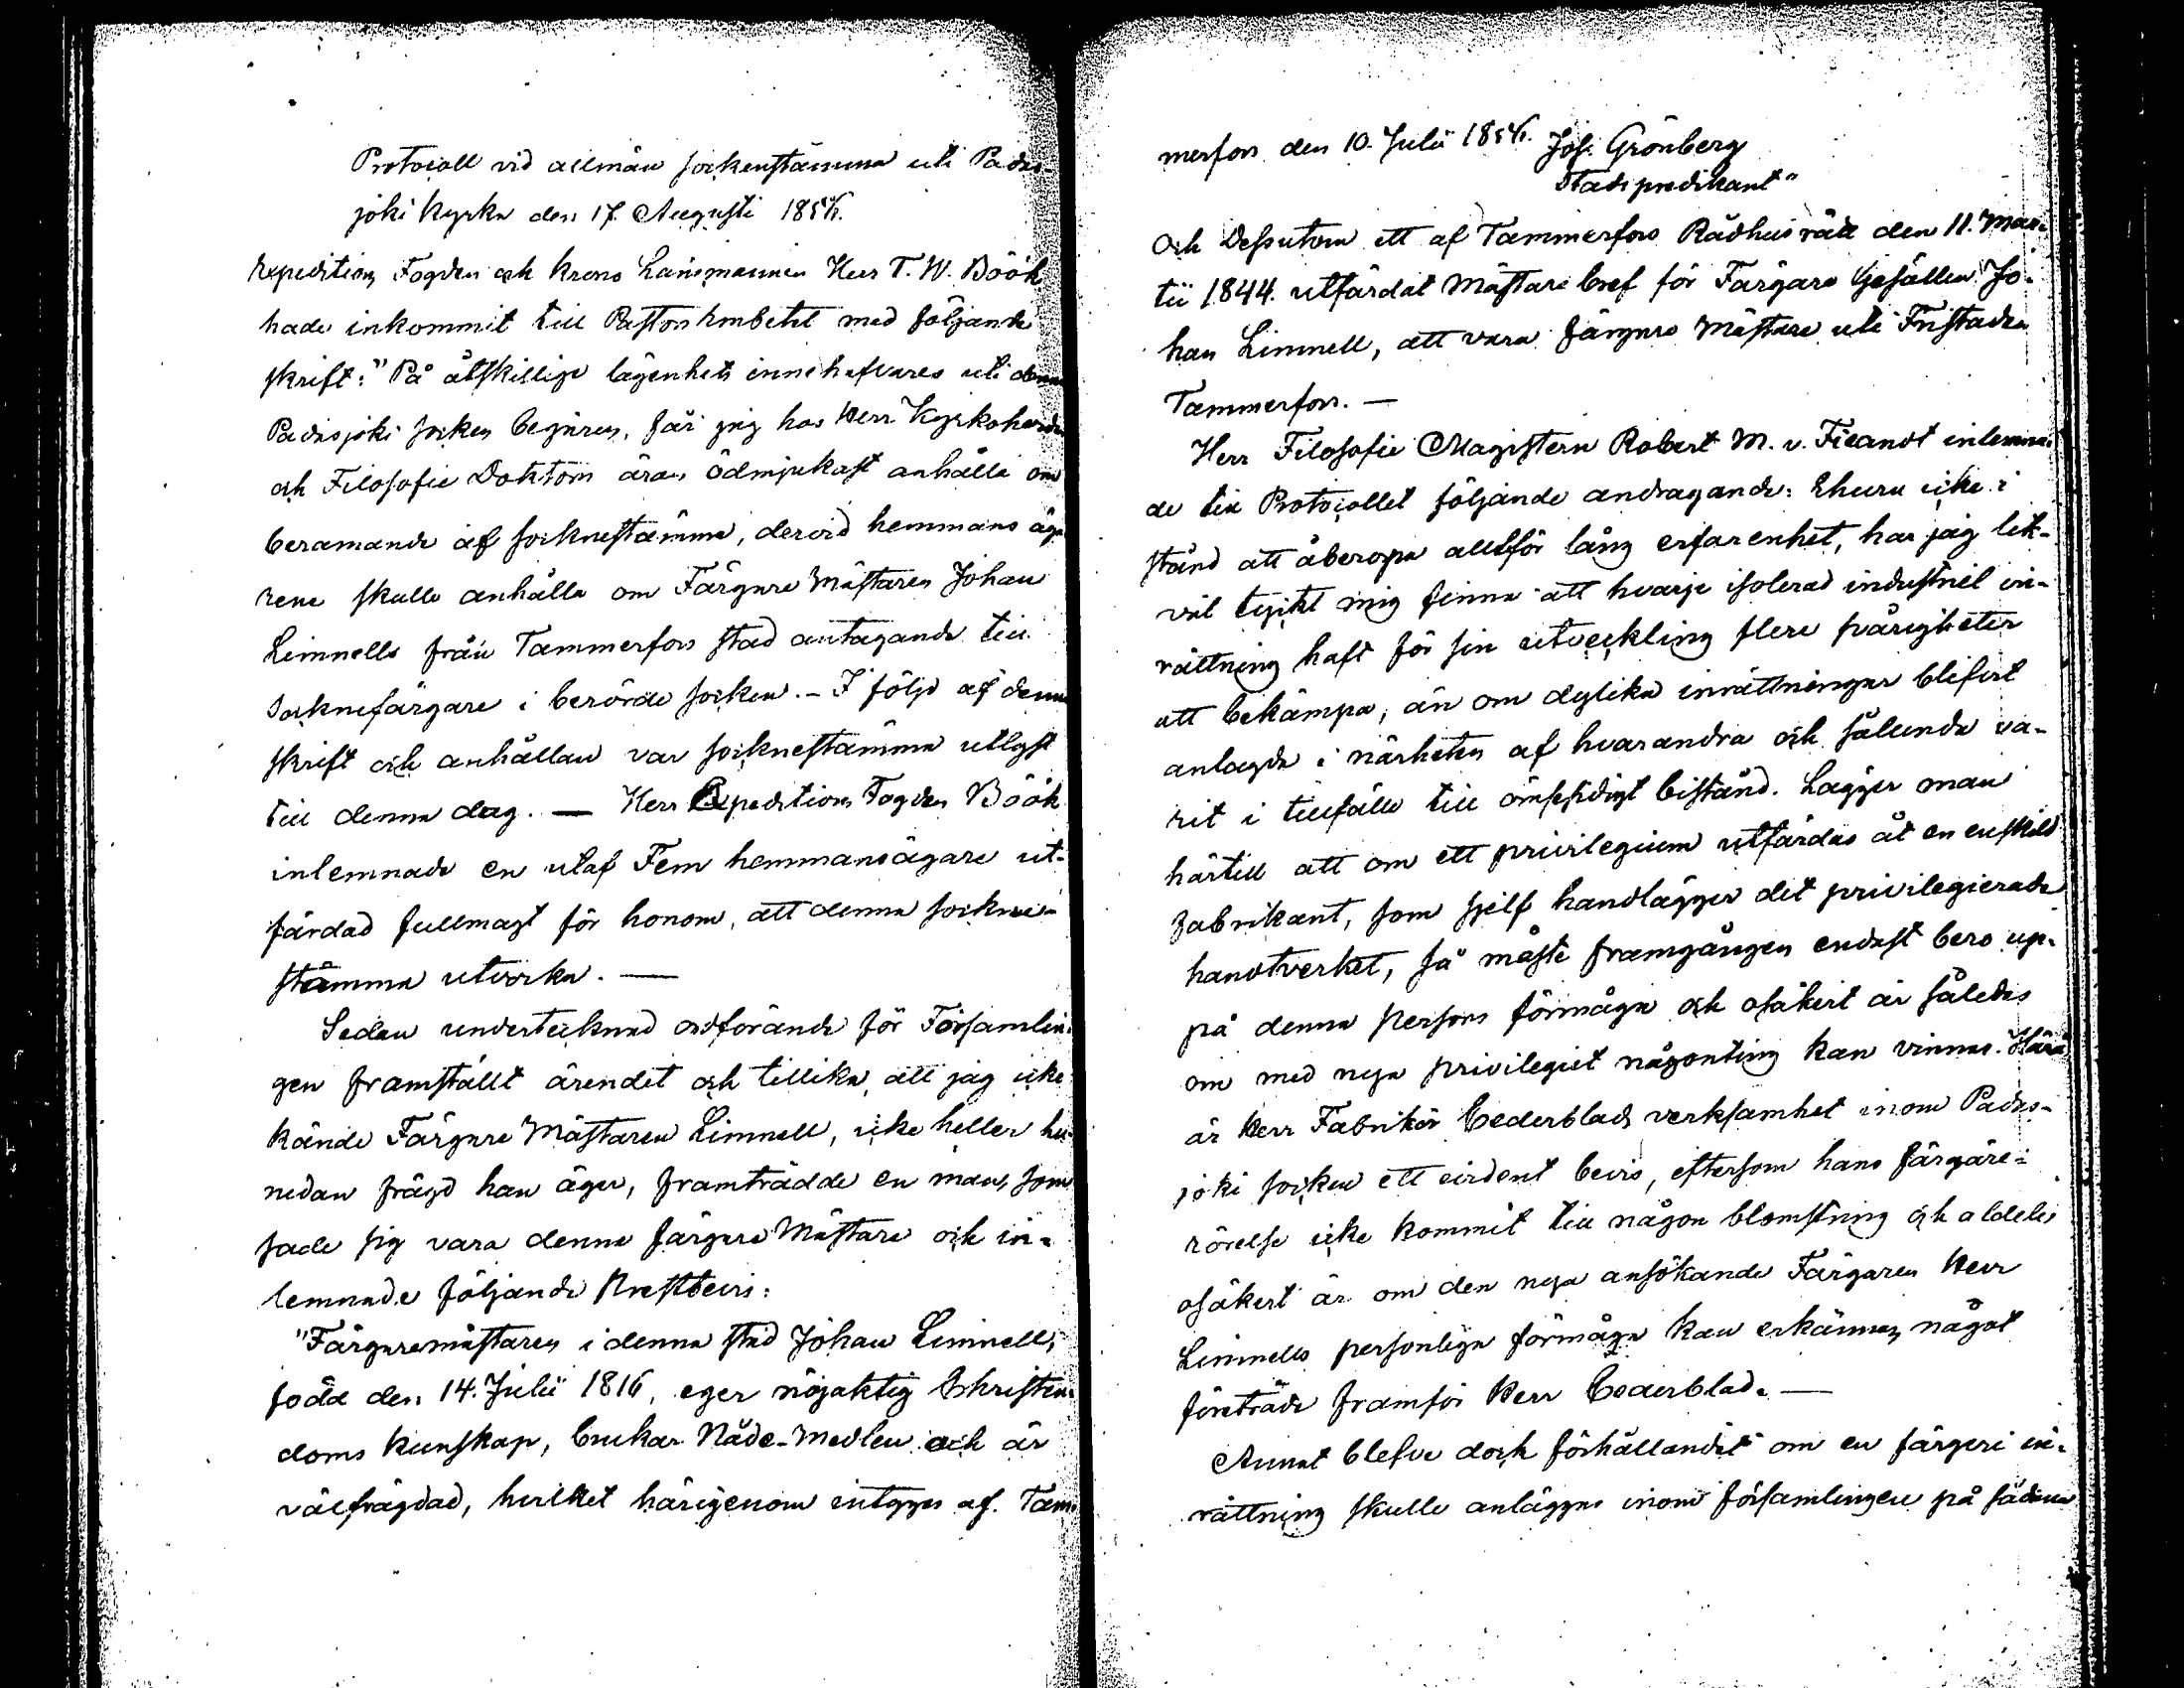 Protocoll vid allmän sockenstämma uti Padas-
joki kyrka den 17. Augusti 1856.
Expeditions Fogden och Krono Länsmannen Herr T. W. Böök
hade inkommit till Pastors Embetet med följande
skrift: "På åtskillige lägenhets innehafvares uti denna
Padasjoki socken begäran, får jag hos Herr Kyrkoherden
och Filosofie Doktorn äran ödmjukast anhålla om
beramande af socknestämma, dervid hemmans äga-
rene skulle anhålla om Färgare Mästaren Johan
Limnells från Tammerfors stad antagande till
Socknefärgare i berörde socken. - I följd af denna
skrift och anhållan var socknestämma utlyst
till denna dag. — Herr Expeditions Fogden Böök
inlemnade en utaf Fem hemmansägare ut-
färdad fullmagt för honom, att denna sockne-
stämma utvirka. —
Sedan undertecknad ordförande för Församlin-
gen framställt ärendet och tillika, att jag icke
kände Färgare Mästaren Limnell, icke heller hu-
nedan frägd han äger, framträdde en man, som
sade sig vara denne Färgare Mästare och in-
lemnade följande Prestbevis:
"Färgaremästaren i denna stad Johan Limnell,
född den 14. Julii 1816, eger nöjaktig Christen-
doms kunskap, brukar Nåde-Medlen och är
välfrägdad, hvilket härigenom intygas af. Tam-
merfors den 10. Julii 1856. Jos. Grönberg
Stads predikant"
Och Dessutom ett af Tammerfors Rådhusrätt den 11. Mar-
tii 1844. utfärdat Mästare bref för Färgare Gesällen Jo-
han Limnell, att vara Färgare Mästare uti Fristaden
Tammerfors. —
Herr Filosofie Magistern Robert M. v. Fieandt inlemna-
de till Protocollet följande andragande: Ehuru icke i
stånd att åberopa alltför lång erfarenhet, har jag lik-
väl tyckt mig finna att hvarje isolerad industriel in-
rättning haft för sin utveckling flere svårigheter
att bekämpa, än om dylika inrättningar blifvit
anlagda i närheten af hvarandra och sålunda va-
rit i tillfälle till ömsesidigt bistånd. Lägger man
härtill att om ett privilegium utfärdas åt en enskild
Fabrikant, som sjelf handlägger det privilegierade
handtverket, så måste framgången endast bero up-
på denna persons förmåga och osäkert är således
om med nya privilegiet någonting kan vinnas. Härå
är Herr Fabrikör Cederblads verksamhet inom Padas-
joki socken ett evident bevis, eftersom hans färgare-
rörelse icke kommit till någon blomstring och aldeles
osäkert är om den nya ansökande Färgaren Herr
Limnells personliga förmåga kan erkännas något
företräde framför Herr Cederblad. —
Annat blefve dock förhållandet om en färgeri in-
rättning skulle anläggas inom församlingen på sådana